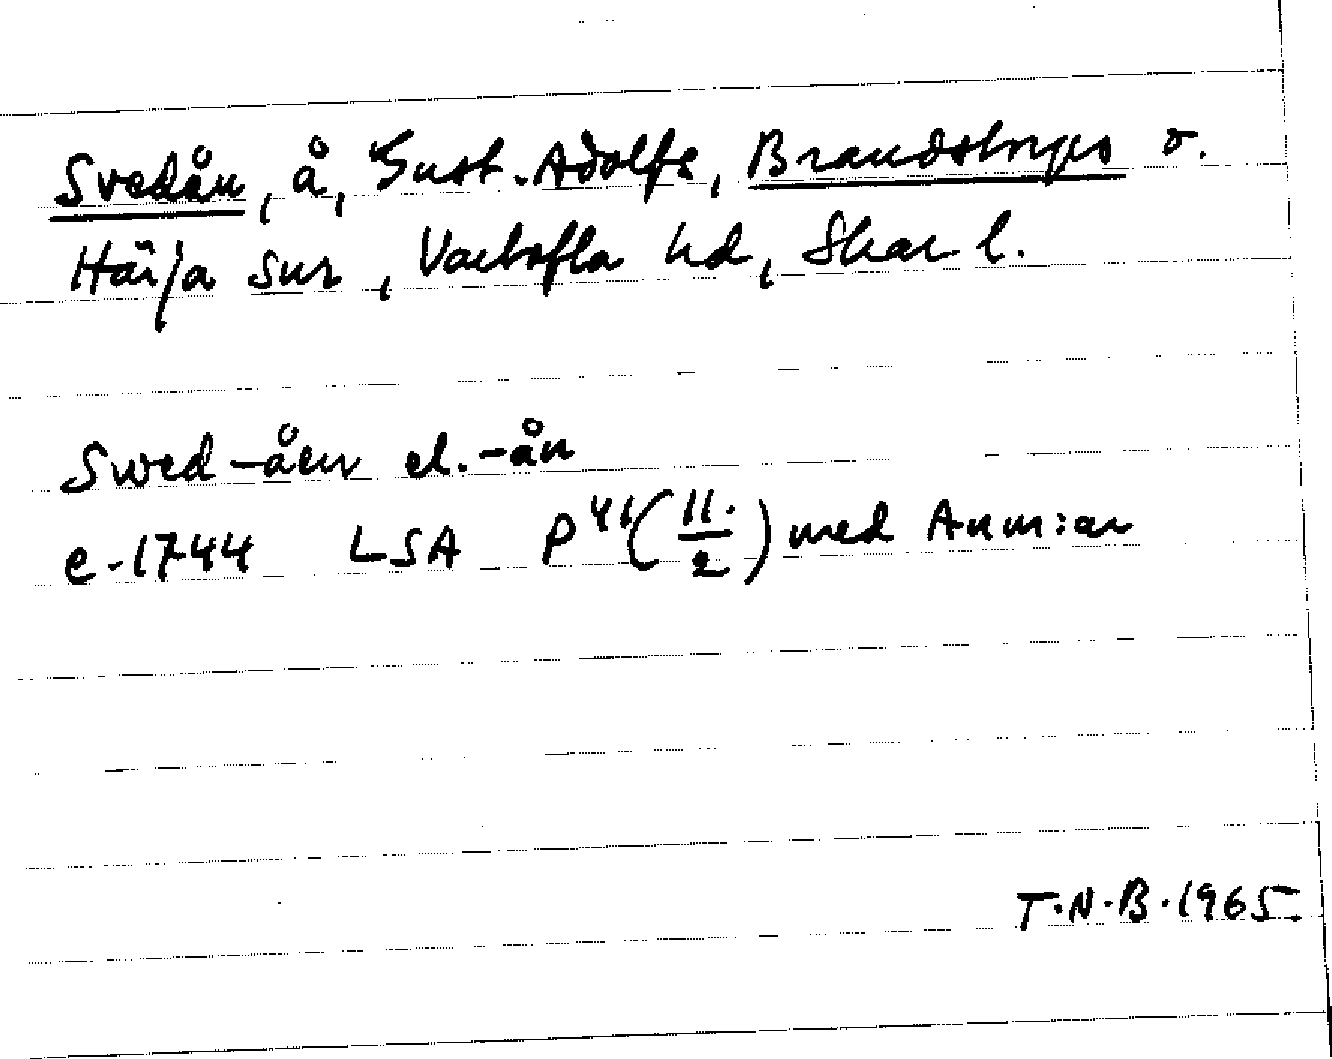 Svedån, å, Gust. Adolfs, Brandstorps o.
Härja snr, Vartofta hd, Skar l.
Swed-åen el. -ån
e. 1744 LSA P 41 (11./2) med Anm:ar
T.N.B. 1965